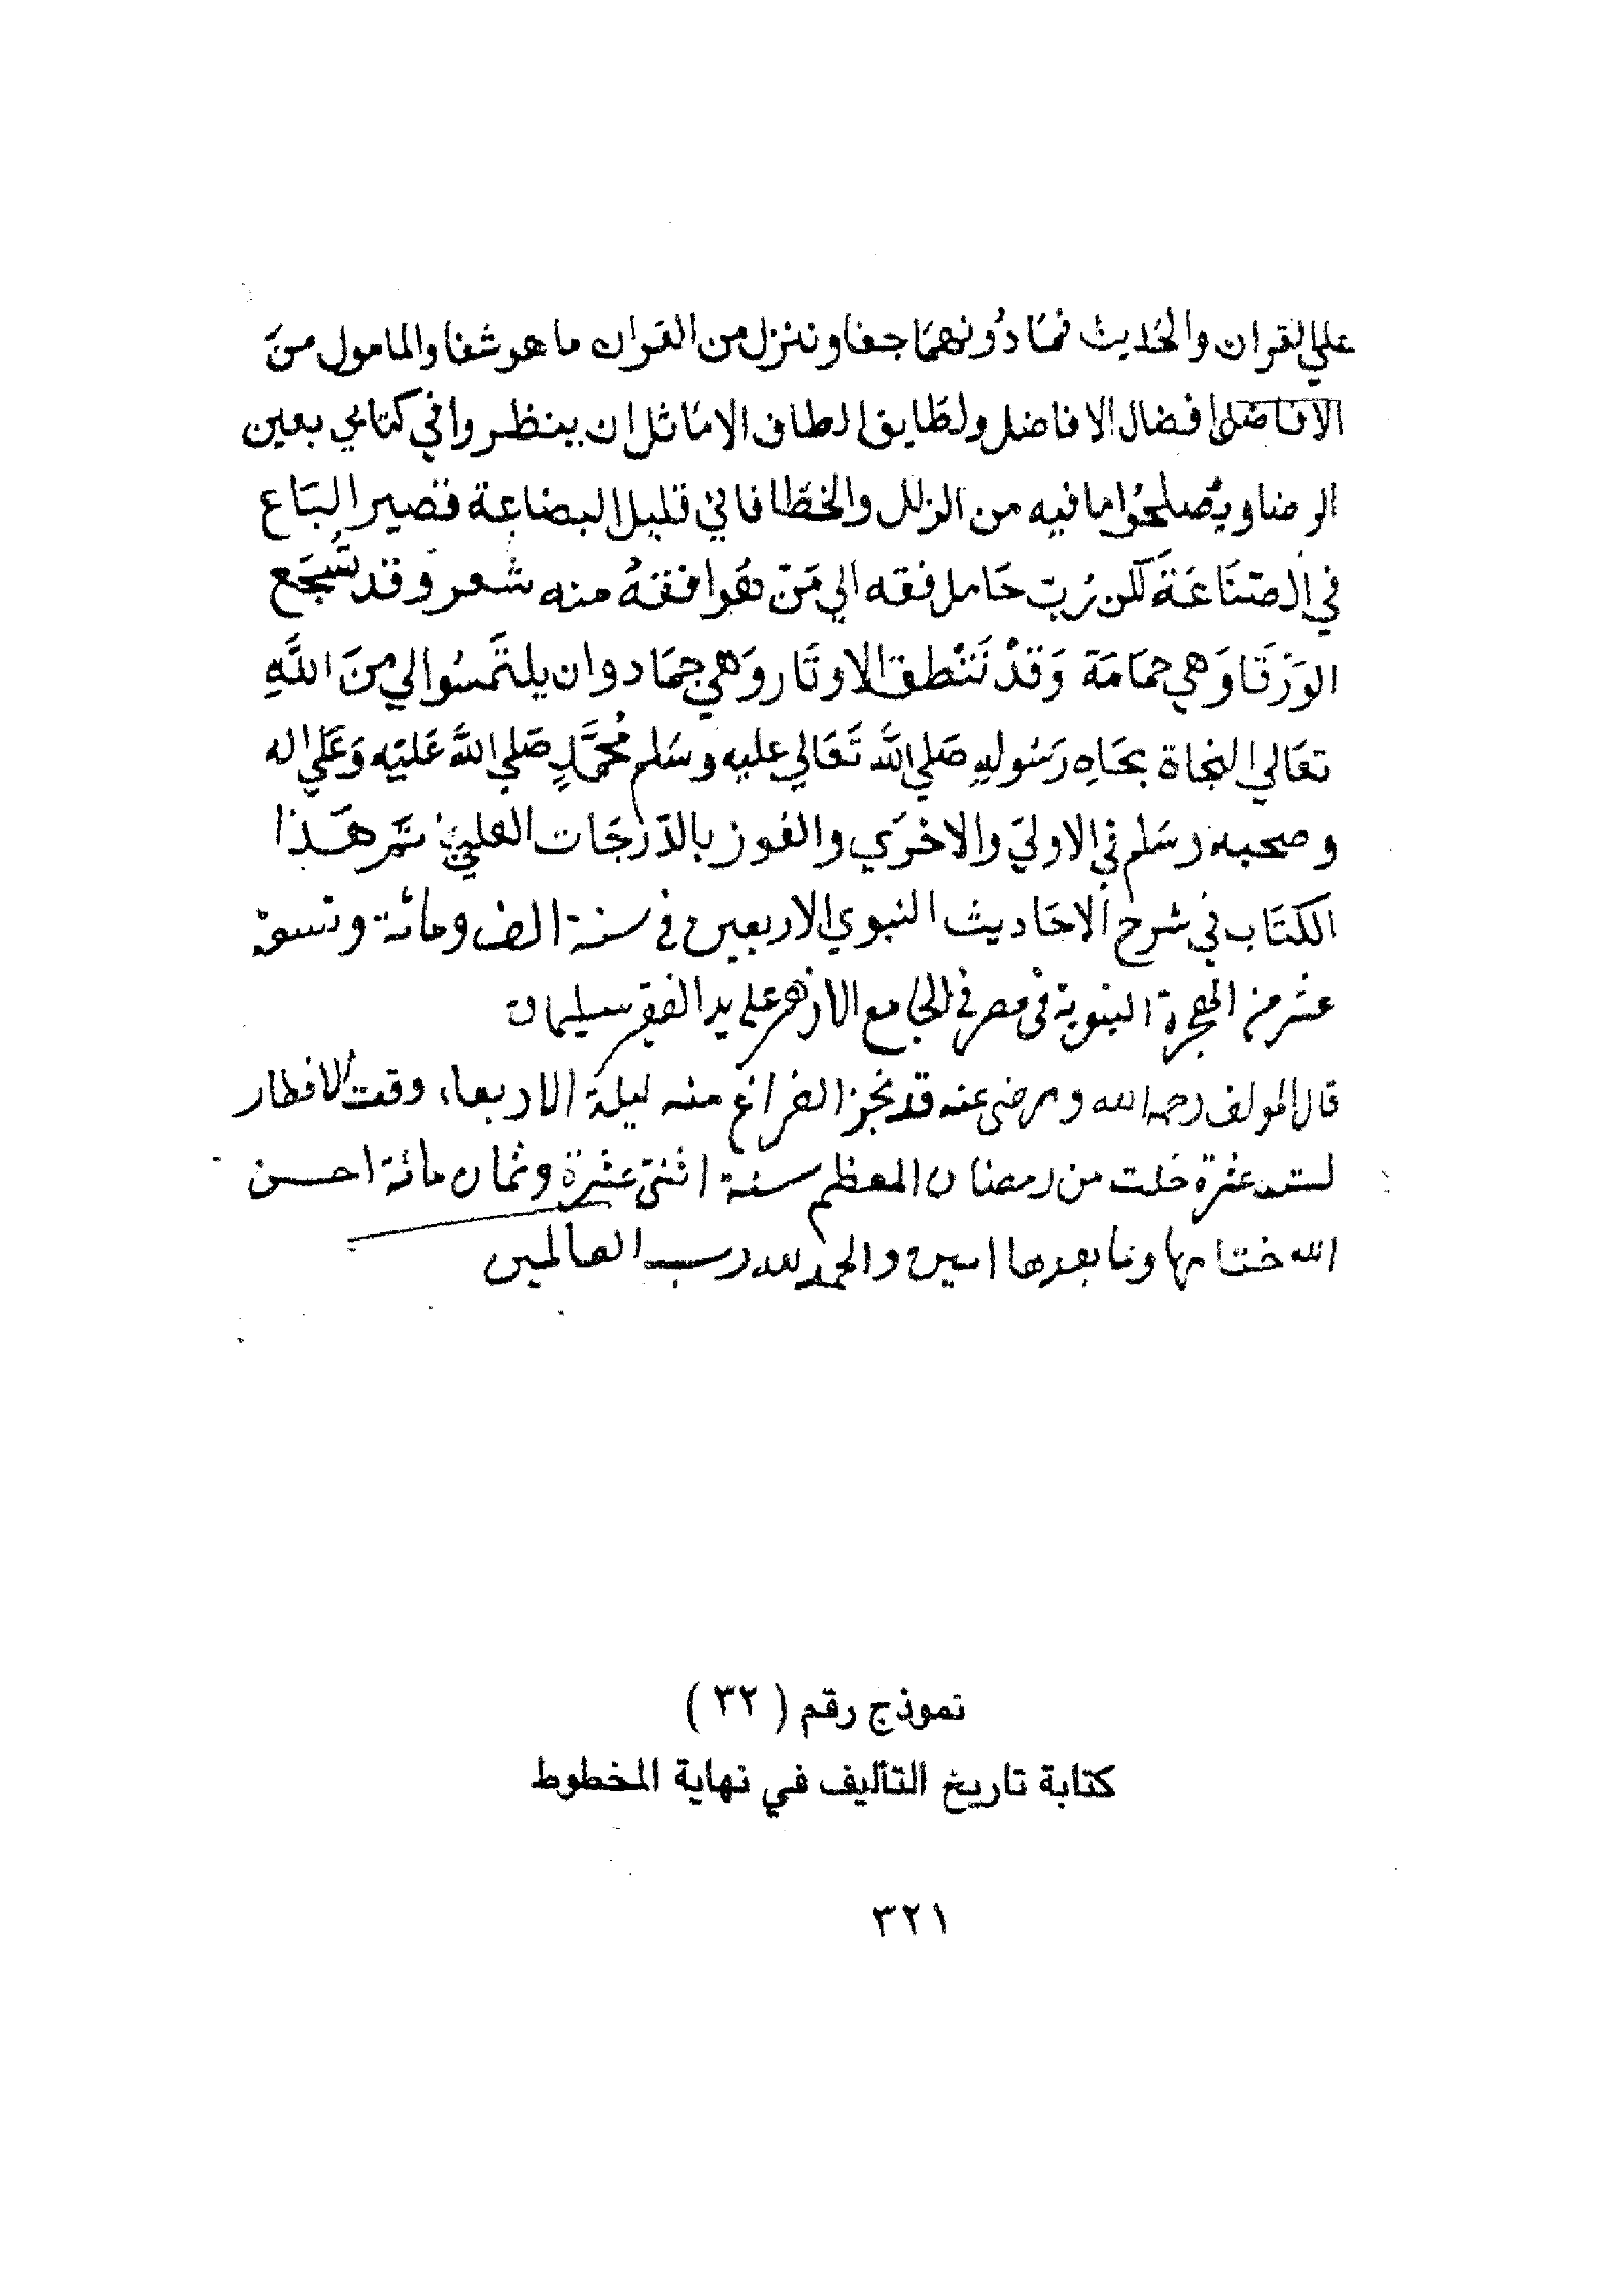 علي القران والحَديث فمَا دُونهمَا جفا وننزل من القران ما هو شفا والمامول منَ
الافاضل افضال الافاضل ولطَايف الطاف الامَاثل ان ينظروا في كتابي بعين
الرضا ويُصلحُوا ما فيه من الزلل والخطَا فاني قليل البضاعة قصير البَاع
في الصّنَاعَة لكن رُبّ حَامل فقه الي مَنْ هُوَ افقهُ منه شعر وقد تسْجَع
الوَرْقَا وَهي حمَامَة وَقدْ تَنْطق الاوتَار وَهي جمَاد وان يلتَمسُوا لي منَ اللَّهِ
تعَالي النجَاة بجَاهِ رَسُولهِ صَلي اللَّه تَعَالي عليه وسَلم مُحمَّدٍ صَلي اللَّه عَليَه وَعَلي اله
وصحبه وسَلم في الاوليَ والاخرَي والفوز بالدّرجَات العلي تمّ هَذا
الكتَاب في شرح الاحَاديث النبوي الاربعين في سنة الف ومائة وتسعة
عشر من الهجرة النبوية في مصر في الجامع الازهر على يد الفقير سليمان
قال المولف رحمه الله ورضى عنه قد نجز الفراغ منه ليلة الاربعاء وقت الافطار
لستة عشرة خلت من رمضان المعظم سنة اثنتى عشرة وثمان مائة احسن
الله ختامها وما بعدها امين والحمد لله رب العالمين
نموذج رقم ( ٣٢ )
كتابة تاريخ التأليف في نهاية المخطوط
٣٢١